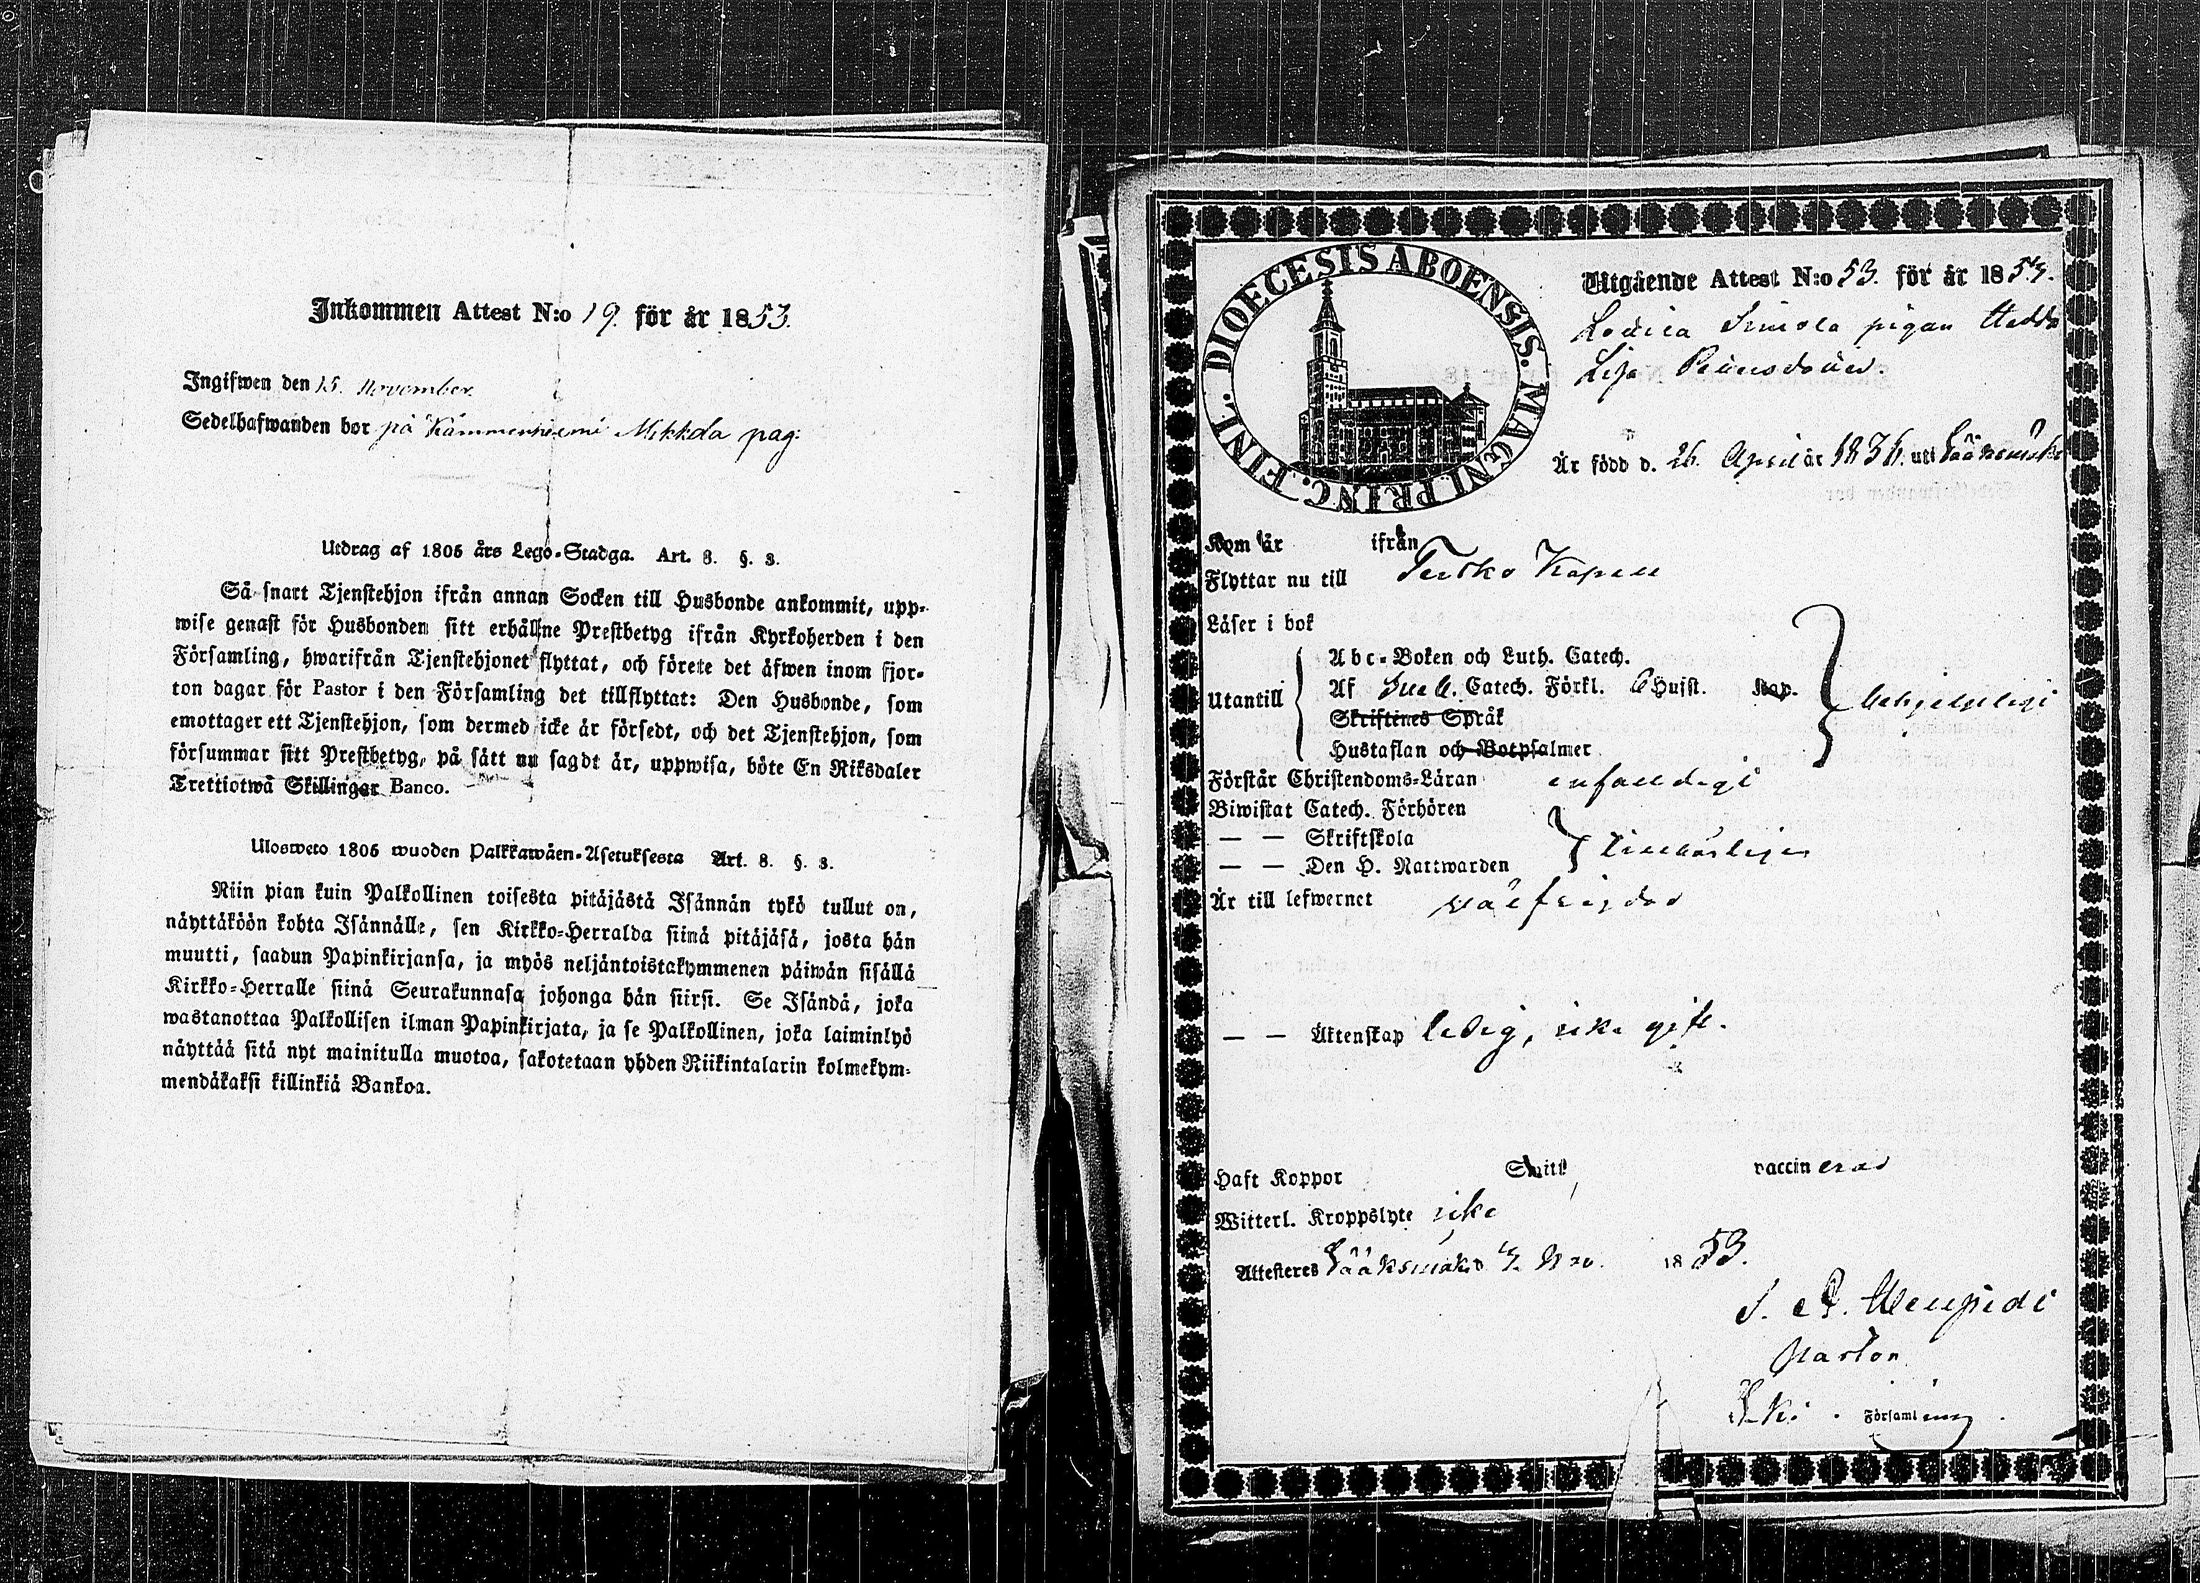 Inkommen Attest N:o 19. för år 1853.
Ingifwen den 15. November.
Sedelhafwanden bor på Kämmenniemi Mikkola pag:
Utdrag af 1805 års Lego-Stadga. Art. 8. §. 3.
Så snart Tjenstehjon ifrån annan Socken till Husbonde ankommit, upp-
wise genast för Husbonden sitt erhållne Prestbetyg ifrån Kyrkoherden i den
Församling, hwarifrån Tjenstehjonet flyttat, och förete det äfwen inom fjor-
ton dagar för Pastor i den Församling det tillflyttat: Den Husbonde, som
emottager ett Tjenstehjon, som dermed icke är försedt, och det Tjenstehjon, som
försummar sitt Prestbetyg, på sätt nu sagdt är, uppwisa, böte En Riksdaler
Trettiotwå Skillingar Banco.
Ulosweto 1805 wuoden Palkkawäen-Asetuksesta Art. 8. §. 3.
Niin pian kuin Palkollinen toisesta pitäjästä Isännän tykö tullut on,
näyttäköön kohta Isännälle, sen Kirkko-Herralda siinä pitäjäsä, josta hän
muutti, saadun Papinkirjansa, ja myös neljäntoistakymmenen päiwän sisällä
Kirkko-Herralle siinä Seurakunnasa johonga hän siirsi. Se Isändä, joka
wastanottaa Palkollisen ilman Papinkirjata, ja se Palkollinen, joka laiminlyö
näyttää sitä nyt mainitulla muotoa, sakotetaan yhden Riikintalarin kolmekym-
mendäkaksi killinkiä Bankoa.
DIOECESIS ABOENSIS. MAGNI PRINC. FINL.
Utgående Attest N:o 53. för år 1853.
Simola pigan Hedda
Lisa
Är född d. 26. April år 183 uti Sääksmäki
Kom år ifrån
Flyttar nu till Teisko Kapell
Läser i bok
Utantill
Abc-Boken och Luth. Catech.
Af Catech. Förkl. Husst. Kap.
Skriftenes Språk
Hustaflan och Botpsalmer
behjelpligt
Förstår Christendoms-Läran enfaldigt
Biwistat Catech. Förhören
— — Skriftskola
— — Den H. Nattwarden
Är till lefwernet wälfrejdad
— — Äktenskap ledig, icke gift.
Haft Koppor Snitt vaccinerad
Witterl. Kroppslyte icke
Attesteres Sääksmäki Nov. 1853.
Pastor
Ski. Församling.